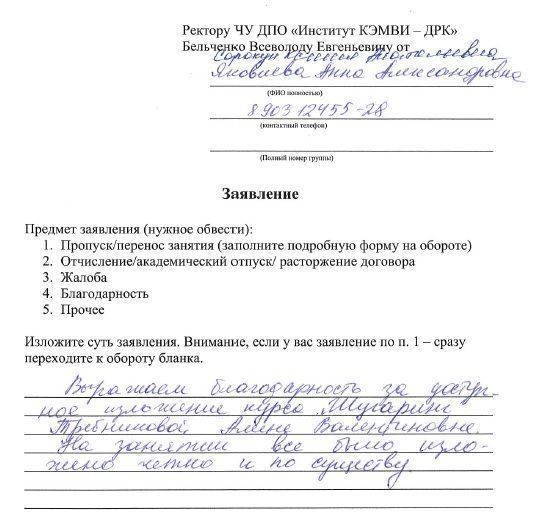 Ректору ЧУ ДПО «Институт КЭМВИ – ДРК»
Бельченко Всеволоду Евгеньевичу от
Сорокун Ксения Анатольевна
Яковлева Анна Александровна
(ФИО полностью)
8903 12455-28
(контактный телефон)
(Полный номер группы)
Заявление
Предмет заявления (нужное обвести):
1. Пропуск/перенос занятия (заполните подробную форму на обороте)
2. Отчисление/академический отпуск/ расторжение договора
3. Жалоба
4. Благодарность
5. Прочее
Изложите суть заявления. Внимание, если у вас заявление по п. 1 – сразу
переходите к обороту бланка.
Выражаем благодарность за доступ-
ное изложение курса „Шугаринг
Требниковой Алене Валентиновне.
На занятии все было изло-
жено четко и по существу.